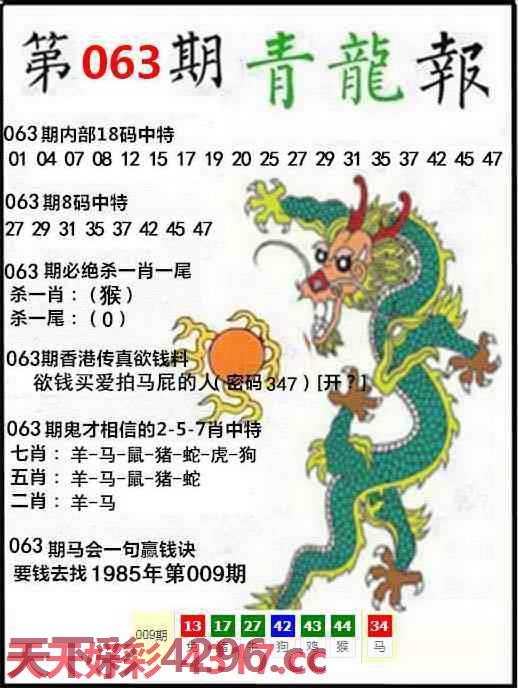 第063期青龍報
063期内部18码中特
01 04 07 08 12 15 17 19 20 25 27 29 31 35 37 42 45 47
063期8码中特
27 29 31 35 37 42 45 47
063期必绝杀一肖一尾
杀一肖：（猴）
杀一尾：（0）
063期香港传真欲钱料
欲钱买爱拍马屁的人（密码347）[开？]
063期鬼才相信的2-5-7肖中特
七肖：羊-马-鼠-猪-蛇-虎-狗
五肖：羊-马-鼠-猪-蛇
二肖：羊-马
063期马会一句赢钱诀
要钱去找1985年第009期
009期 13 17 27 42 43 44 34
狗 鸡 猴 马
天天好彩4296.cc